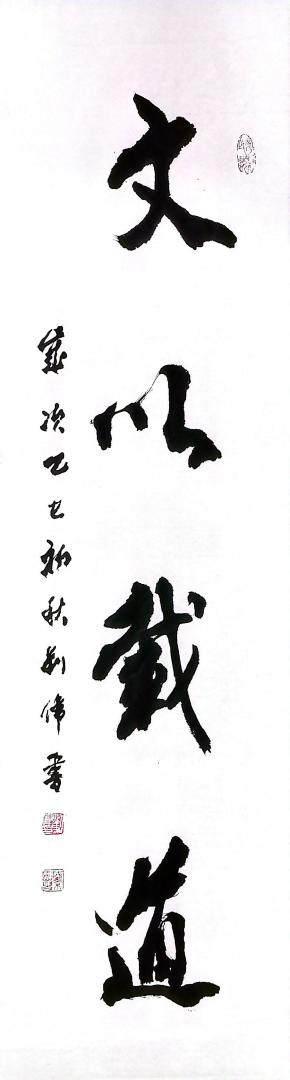 文以載道
歲次乙巳初秋利偉書